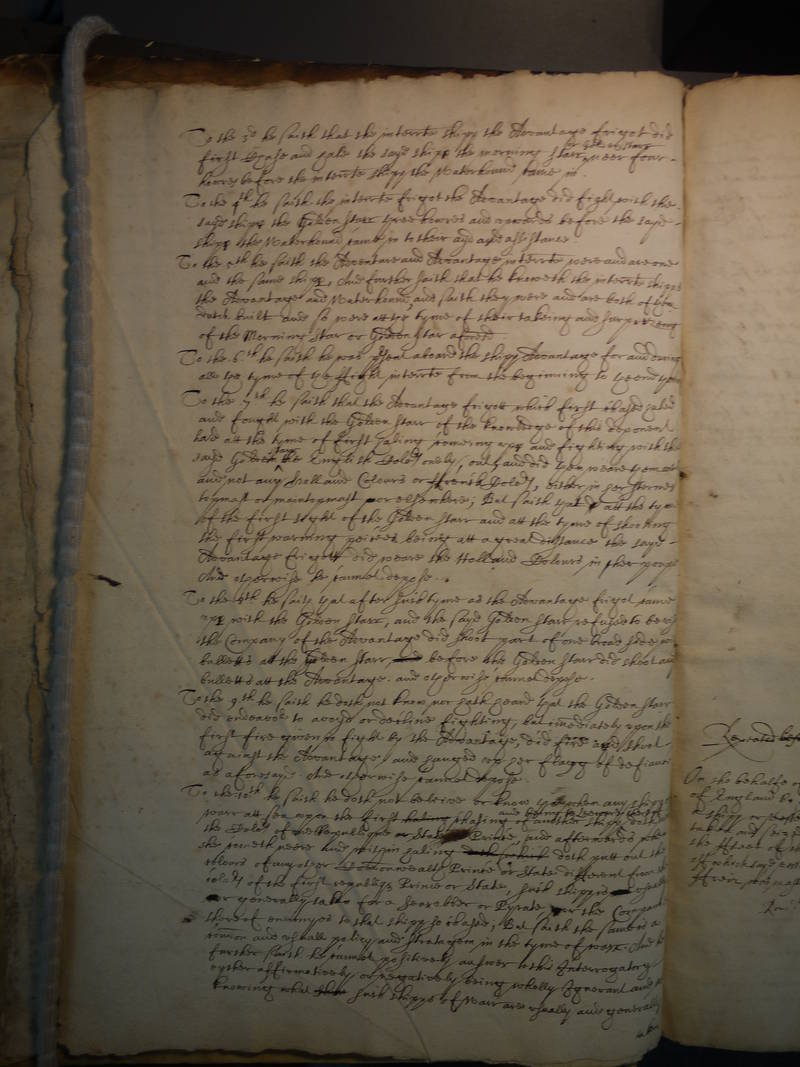 To the 3d he saith that the interrte shipp the Advantage frigot did
first Chase and gale the sayd shipp the morning Starr or Golden Starr neer four
howres before the interrte shipp the Waterhound came in.
To the 4th he saith the interrte frigot the Advantage did fight with the
sayd shipp the Golden Starr three howres and upwards before the sayd
shipp the Waterhound came in to their ayd and assistance
To the 5th he saith the Adventure and Advantage interrte were and are one
and the same shipp, And further saith that he knoweth the interrte shipps
the Advantage and Waterhound, and saith they were and are both of them
dutch built and so were att the tyme of their takeing and surprizeing
of the Morning Star or Golden Star aforesd
To the 6th he saith he was aboard the shipp Advantage for and during
all the tyme of the fight interrte from the beginning to the end
To the 7th he saith that the Advantage frigott which first chased
and fought with the Golden Starr of the knowledge of this deponent
had att the tyme of first haling comeing upp and fighting with the
sayd Golden Starr the English Colors onely, and did then weare them
and not any Holland Colours or ffrench Colors, either in her Sterne
topmast or maintopmast nor elsewhere; But saith that att the tyme
of the first sight of the Golden Starr and att the tyme of shooting
the first warning peices being att a great distance the sayd
Advantage frigott did weare the Holland Colours in her poope
And otherwise he cannot depose.
To the 8th he saith that after such tyme as the Advantage frigot came
upp with the Golden Starr, and the sayd Golden Starr refused to
the Company of the Advantage did shoot part of one broad side
bulletts att the Golden Starr, before the Golden Starr did shoot any
bulletts att the Advantage. and otherwise cannot depose.
To the 9th he saith he doth not know nor hath heard that the Golden Starr
did endeavor to avoyd or decline fighting, but imediately upon the
first fire given to fight by the Advantage, did fire and shoot
against the Advantage and hanged upp her flagg of defiance
as aforesayd. And otherwise cannot depose.
To the 10th he saith he doth not beleive or know that when any shipp
warr att sea upon the first chasing of another shipp doth
the Colors of one Republique or State Prince, and afterwards when
she cometh neere and within haling doth putt out the
colours of any other Commonwealth Prince or State different from the
colors of the first republiq Prince or State, such shipp is
or generally taken for a Searobber or Pyrate, or the Company
thereof enemyes to that shipp soe chased; But saith the same is a
common and usuall policy and stratagem in the tyme of warr. And
further saith he cannot positively answer to this Interrogatory
eyther affirmatively or negatively being wholly Ignorant and not
knowing what such shipps of Warr are usually and generally
Repeated before
On the behalfe of
of England
a shipp or
taken and
the